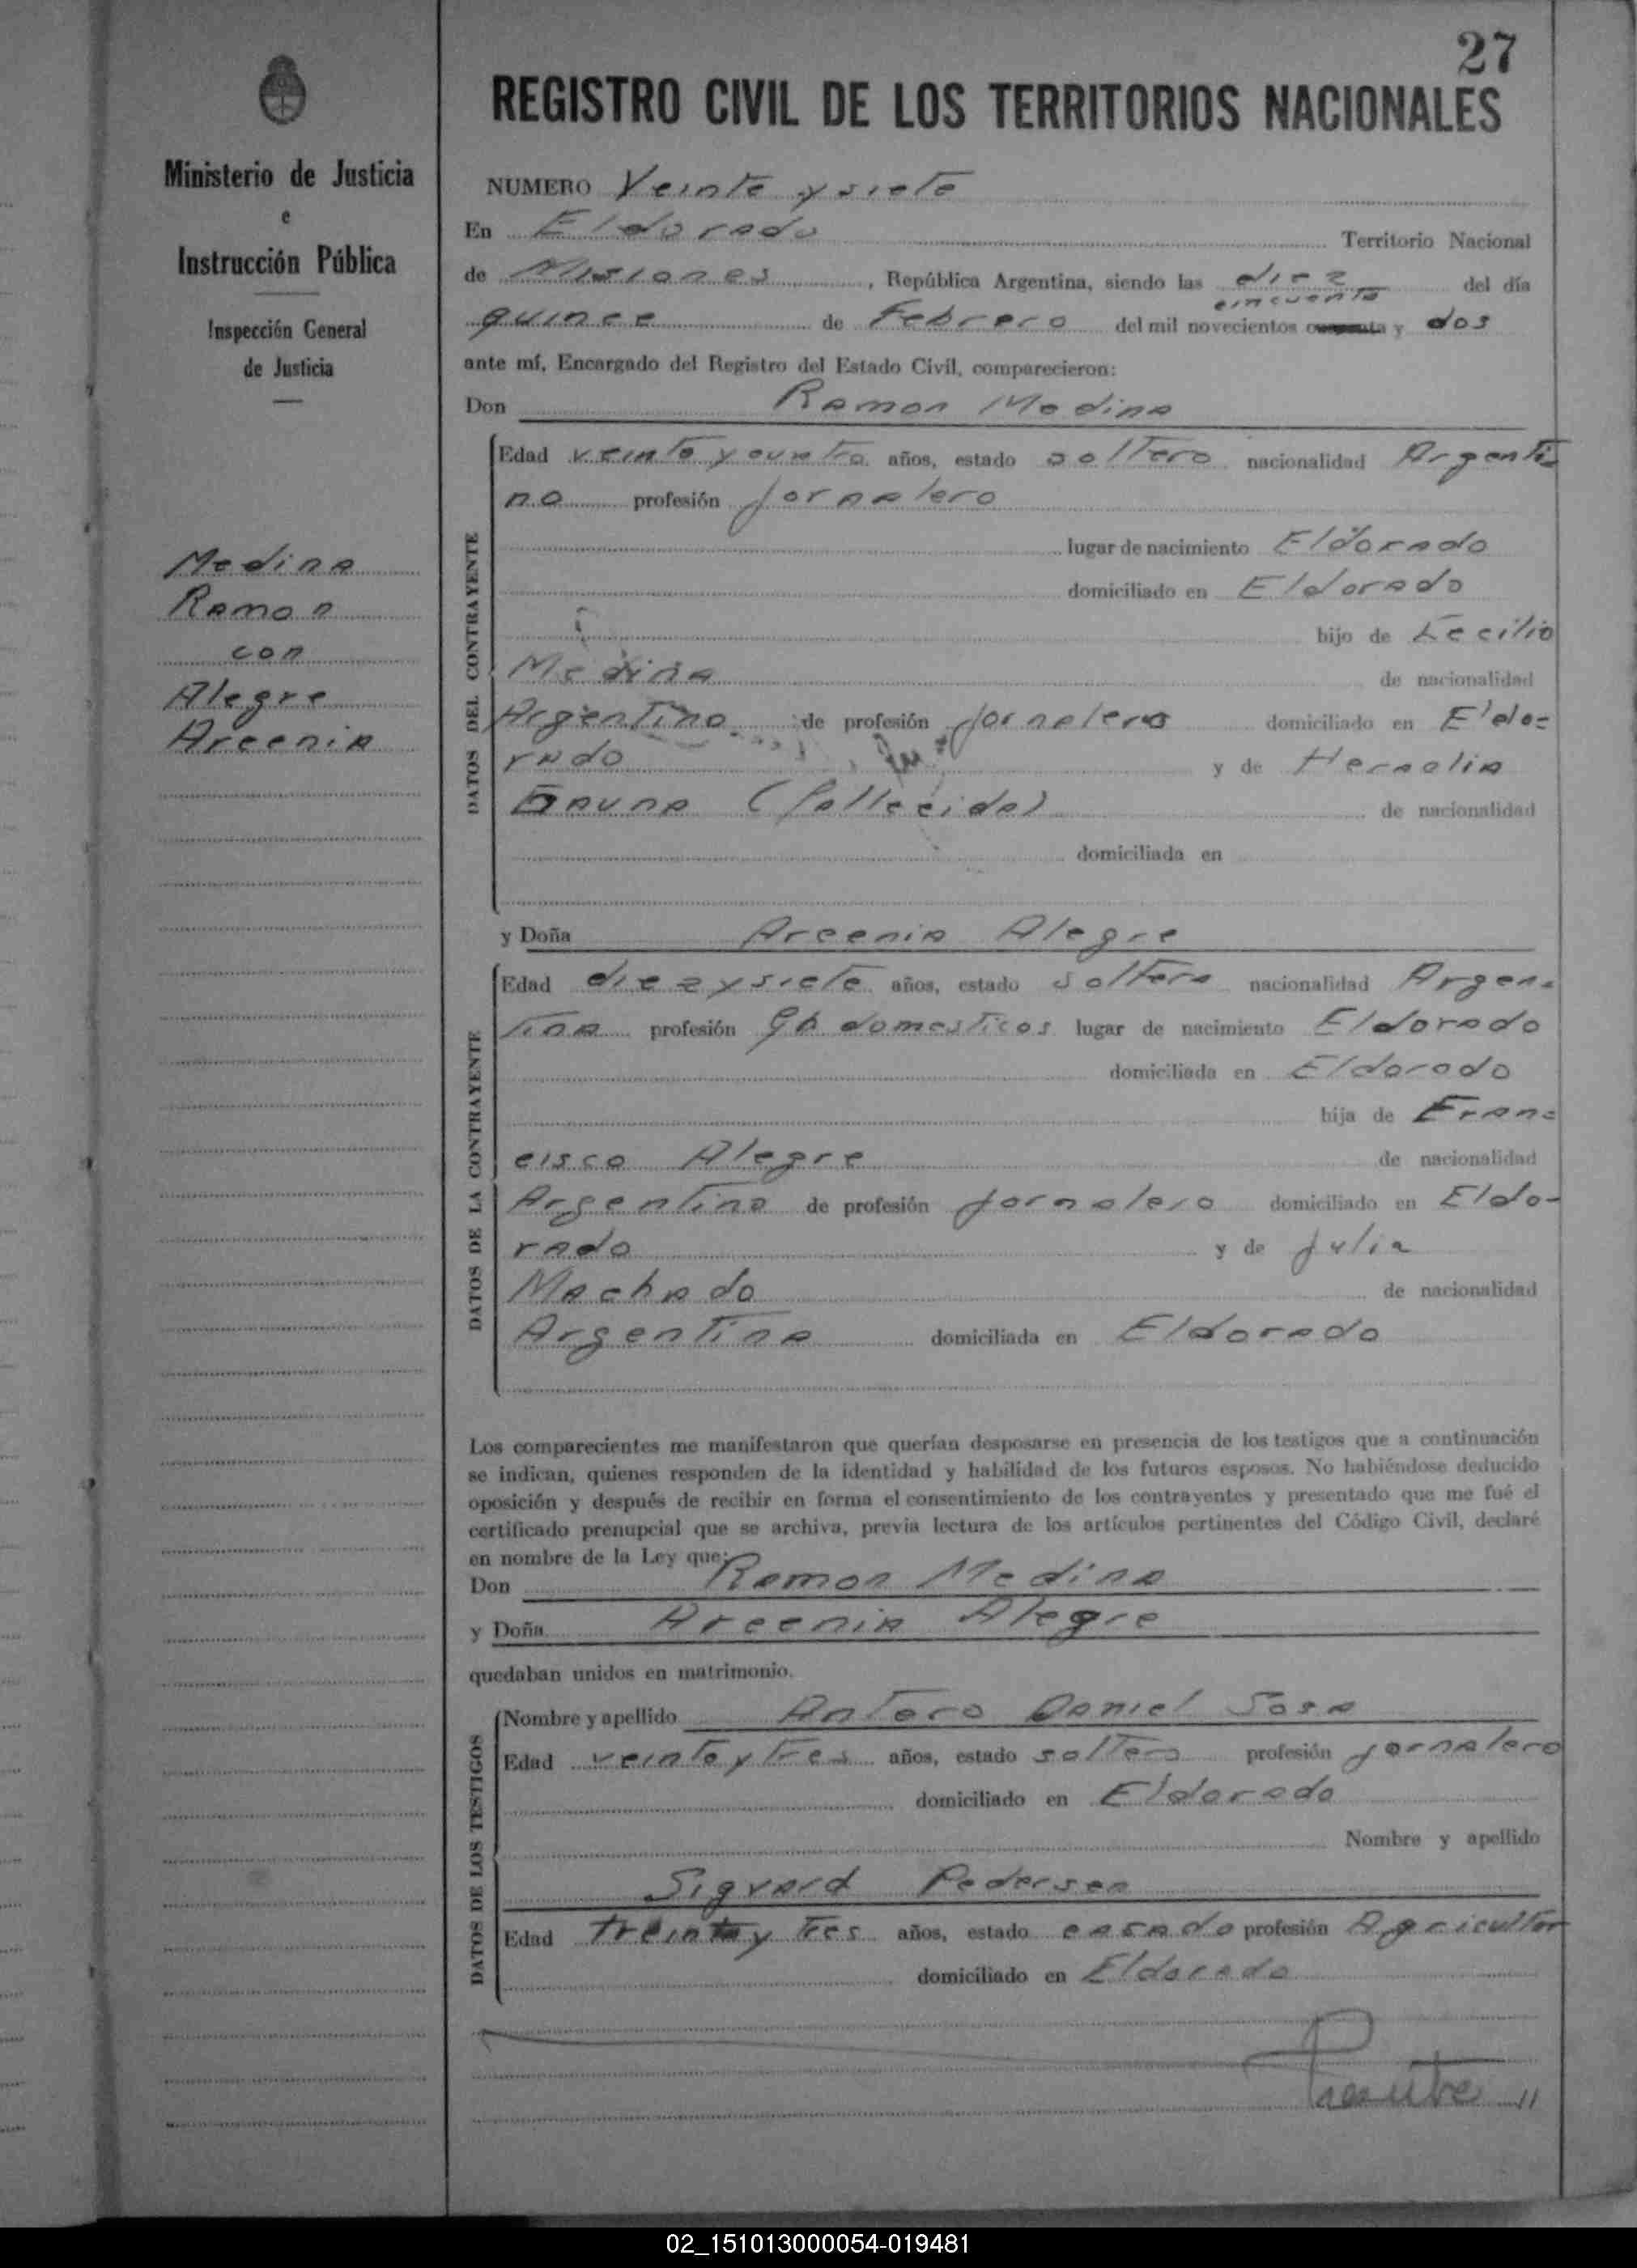 27
REGISTRO CIVIL DE LOS TERRITORIOS NACIONALES
Ministerio de Justicia
e
Instrucción Pública
Inspección General
de Justicia
Medina
Ramon
con
Alegre
Arcenia
NUMERO Veinte y siete
En Eldorado Territorio Nacional
de Misiones, República Argentina, siendo las diez del día
cincuenta
quince de Febrero del mil novecientos y dos
ante mí, Encargado del Registro del Estado Civil, comparecieron:
Don Ramon Medina
DATOS DEL CONTRAYENTE
Edad veinte y cuatro años, estado soltero nacionalidad Argenti
no profesión jornalero
lugar de nacimiento Eldorado
domiciliado en Eldorado
hijo de Cecilio
Medina de nacionalidad
Argentino de profesión jornalero domiciliado en Eldo=
rado y de
Gauna (fallecida) de nacionalidad
domiciliada en
y Doña Arcenia Alegre
DATOS DE LA CONTRAYENTE
Edad diez y siete años, estado soltera nacionalidad Argen=
tina profesión Qh domesticos lugar de nacimiento Eldorado
domiciliada en Eldorado
hija de Fran=
cisco Alegre de nacionalidad
Argentina de profesión jornalero domiciliado en Eldo-
rado y de Julia
Machado de nacionalidad
Argentina domiciliada en Eldorado
Los comparecientes me manifestaron que querían desposarse en presencia de los testigos que a continuación
se indican, quienes responden de la identidad y habilidad de los futuros esposos. No habiéndose deducido
oposición y después de recibir en forma el consentimiento de los contrayentes y presentado que me fué el
certificado prenupcial que se archiva, previa lectura de los artículos pertinentes del Código Civil, declaré
en nombre de la Ley que:
Don Ramon Medina
y Doña Arcenia Alegre
quedaban unidos en matrimonio.
DATOS DE LOS TESTIGOS
Nombre y apellido Antero Daniel Sosa
Edad veinte y tres años, estado soltero profesión jornalero
domiciliado en Eldorado
Nombre y apellido
Sigvard Pedersen
Edad treinta y tres años, estado casado profesión Agricultor
domiciliado en Eldorado
02_151013000054-019481